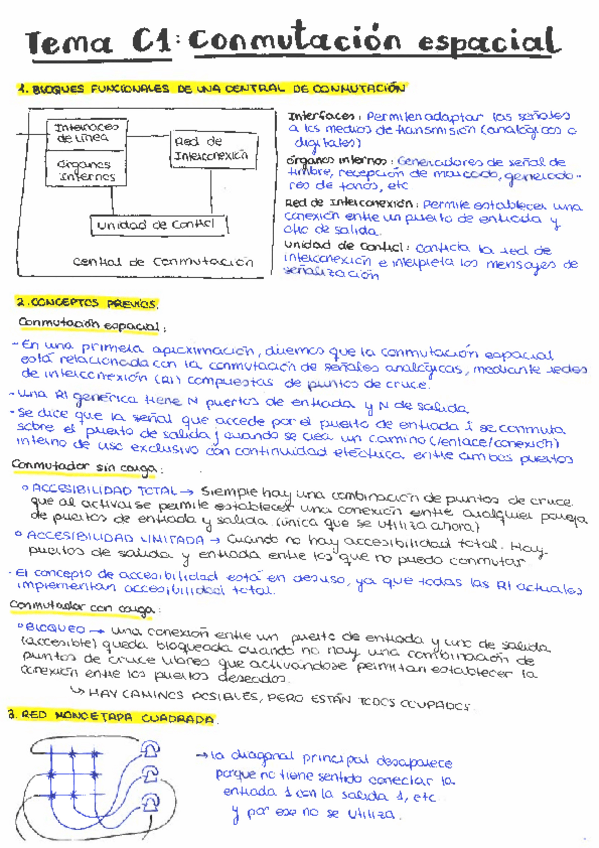 Tema C1: Conmutación espacial
1. BLOQUES FUNCIONALES DE UNA CENTRAL DE CONMUTACIÓN
Interfaces
de línea
órganos
Internos
Red de
Interconexión
Unidad de Control
Central de Conmutación
Interfaces: Permiten adaptar las señales
a los medios de transmisión (analógicos o
digitales)
órganos internos: Generadores de señal de
timbre, recepción de marcado, generado-
res de tonos, etc
Red de Interconexión: Permite establecer una
conexión entre un puerto de entrada y
otro de salida.
Unidad de Control: Controla la red de
interconexión e interpreta los mensajes de
señalización
2. CONCEPTOS PREVIOS.
Conmutación espacial:
- En una primera aproximación, diremos que la conmutación espacial
está relacionada con la conmutación de señales analógicas, mediante redes
de interconexión (RI) compuestas de puntos de cruce.
- Una RI genérica tiene N puertos de entrada y N de salida
- Se dice que la señal que accede por el puerto de entrada i se conmuta
sobre el puerto de salida j cuando se crea un camino (/enlace/conexión)
interno de uso exclusivo con continuidad eléctrica entre ambos puertos
Conmutador sin carga:
ACCESIBILIDAD TOTAL → Siempre hay una combinación de puntos de cruce
que al activarse permite establecer una conexión entre cualquier pareja
de puertos de entrada y salida. (única que se utiliza ahora)
ACCESIBILIDAD LIMITADA → Cuando no hay accesibilidad total. Hay
puertos de salida y entrada entre los que no puedo conmutar
- El concepto de accesibilidad está en desuso, ya que todas las RI actuales
implementan accesibilidad total.
Conmutador con carga:
BLOQUEO → una conexión entre un puerto de entrada y uno de salida
(accesible) queda bloqueada cuando no hay una combinación de
puntos de cruce libres que activándose permitan establecer la
conexión entre los puertos deseados.
↳ HAY CAMINOS POSIBLES, PERO ESTÁN TODOS OCUPADOS.
3. RED MONOETAPA CUADRADA.
→ la diagonal principal desaparece
porque no tiene sentido conectar la
entrada 1 con la salida 1, etc
y por eso no se utiliza.